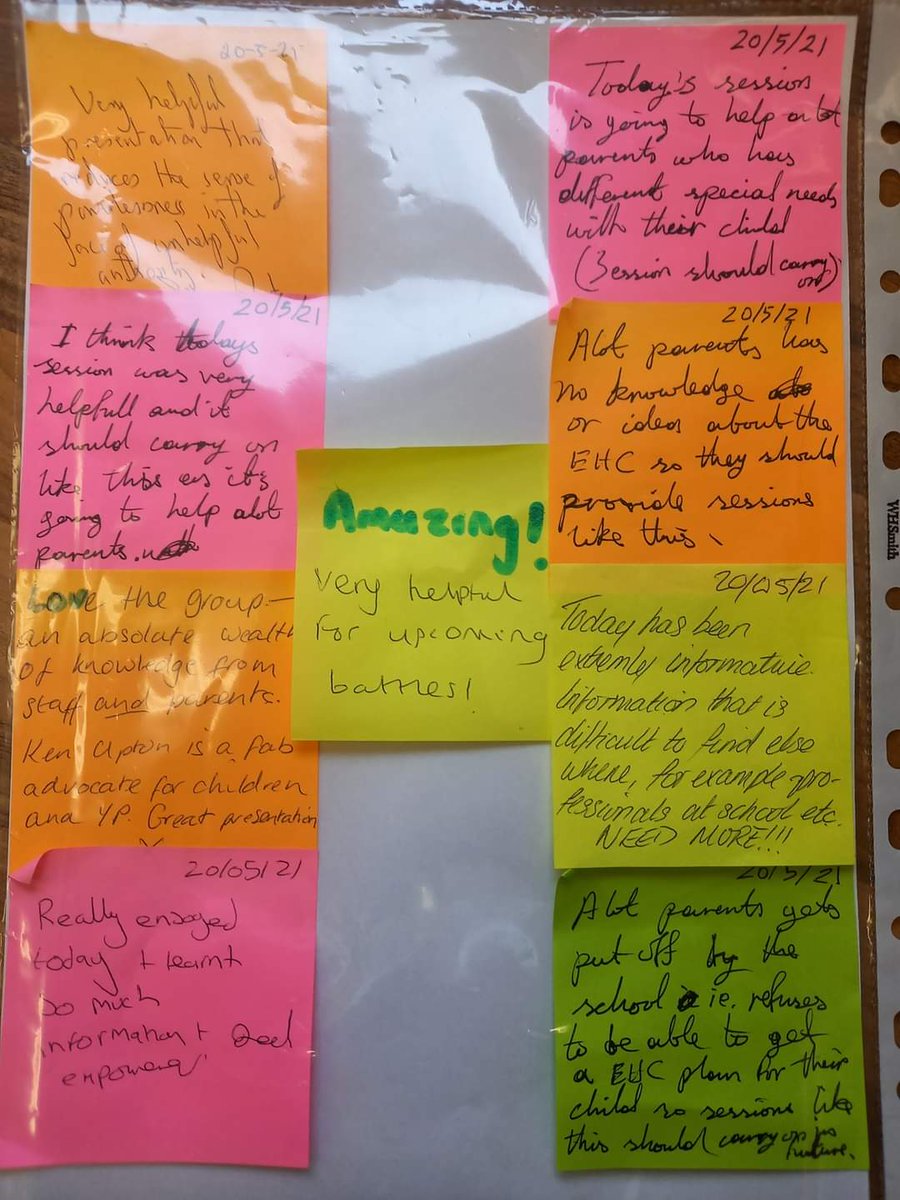 20-5-21
Very helpful
presentation that
reduces the sense of
powerlessness in the
face of unhelpful
authority.
20/5/21
I think todays
session was very
helpfull and it
should carry on
like this as its
going to help alot
parents.
Love the group -
an absolute wealth
of knowledge from
staff and parents.
Ken Upton is a fab
advocate for children
and YP. Great presentation
20/05/21
Really engaged
today + learnt
so much
information +
empowered
Amazing!
Very helpful
for upcoming
battles!
20/5/21
Today's session
is going to help alot
parents who has
different special needs
with their child
(Session should carry
on)
20/5/21
Alot parents has
no knowledge
or ideas about the
EHC so they should
provide sessions
like this.
20/05/21
Today has been
extremely informative.
Information that is
difficult to find else
where, for example pro-
fessionals at school etc.
NEED MORE!!!
20/5/21
Alot parents gets
put off by the
school ie. refuses
to be able to get
a EHC plan for their
child so sessions like
this should carry on in
future.
WHSmith